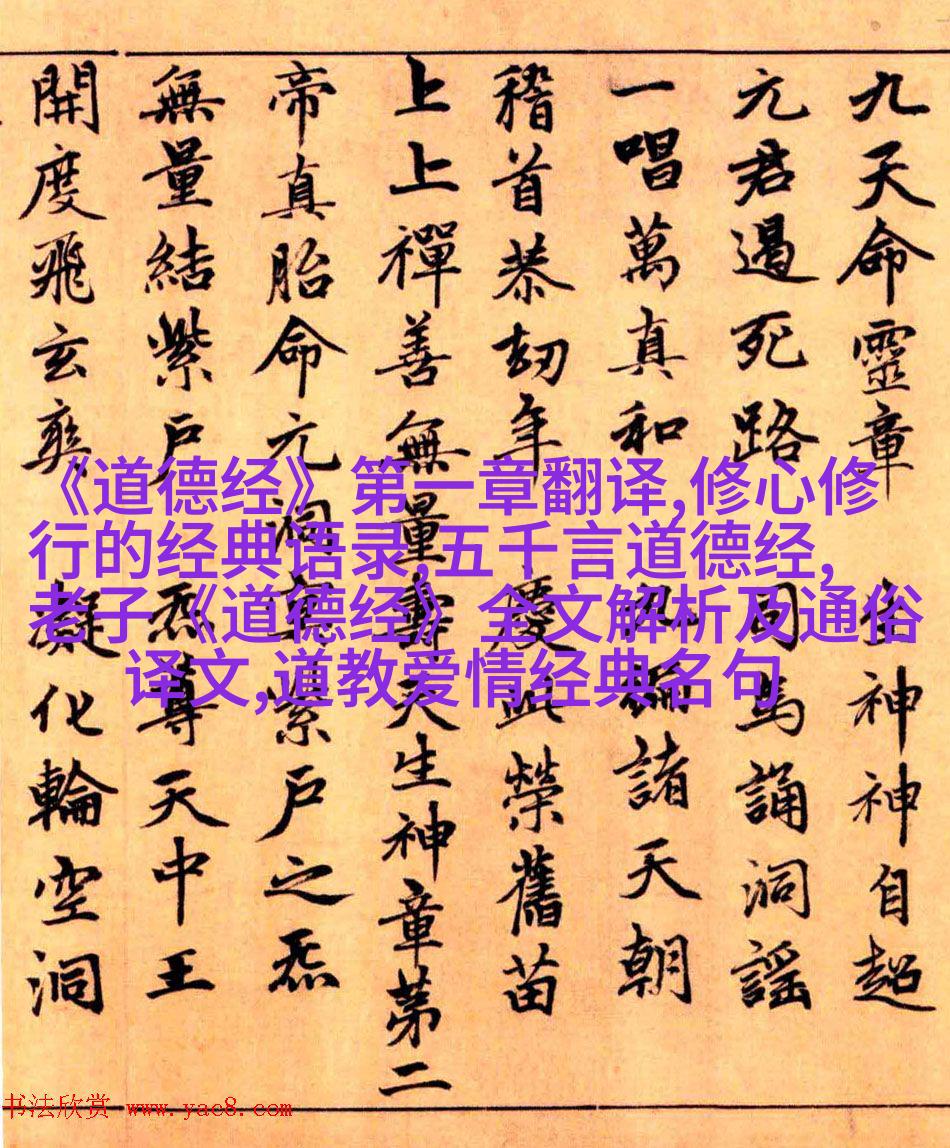 九天命靈章 生神神自超
元君遏死路 司馬誦洞謠
一唱萬真和 諸天朝
稽首恭劫年 慶此榮舊苗
上上禪善無量壽天生神章第二
帝真胎命元洞紫戶之炁
無量結紫戶 炁尊天中王
開度飛玄爽 凝化輪空洞
《道德经》第一章翻译,修心修
行的经典语录,五千言道德经,
老子《道德经》全文解析及通俗
译文,道教爱情经典名句
书法欣赏 www.yac8.com